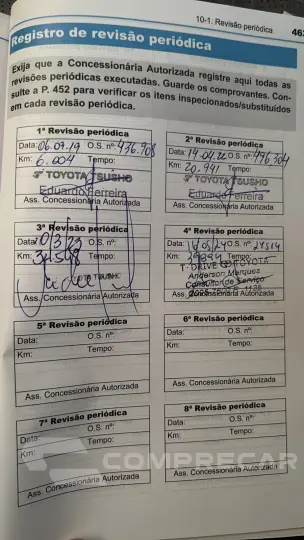 10-1. Revisão periódica
463
Registro de revisão periódica
Exija que a Concessionária Autorizada registre aqui todas as
revisões periódicas executadas. Guarde os comprovantes. Con-
sulte a P. 452 para verificar os itens inspecionados/substituídos
em cada revisão periódica.
1ª Revisão periódica
Data: 06.09.19 O.S. nº: 436.908
Km: 6.004 Tempo:
TOYOTA TSUSHO
Eduardo Ferreira
Ass. Concessionária Autorizada
2ª Revisão periódica
Data: 19.04.22 O.S. nº: 496.304
Km: 20.941 Tempo:
TOYOTA TSUSHO
Eduardo Ferreira
Ass. Concessionária Autorizada
3ª Revisão periódica
Data: 10/3/23 O.S. nº:
Km: Tempo:
TSUSHO
Ass. Concessionária Autorizada
4ª Revisão periódica
O.S. nº:
Km: Tempo:
T-DRIVE TOYOTA
Anderson Marques
Consultor de Serviço
Ass. Concessionária Autorizada
5ª Revisão periódica
Data: O.S. nº:
Km: Tempo:
Ass. Concessionária Autorizada
6ª Revisão periódica
Data: O.S. nº:
Km: Tempo:
Ass. Concessionária Autorizada
7ª Revisão periódica
Data: O.S. nº:
Km: Tempo:
Ass. Concessionária Autorizada
8ª Revisão periódica
Data: O.S. nº:
Km: Tempo:
Ass. Concessionária Autorizada
COMPRECAR